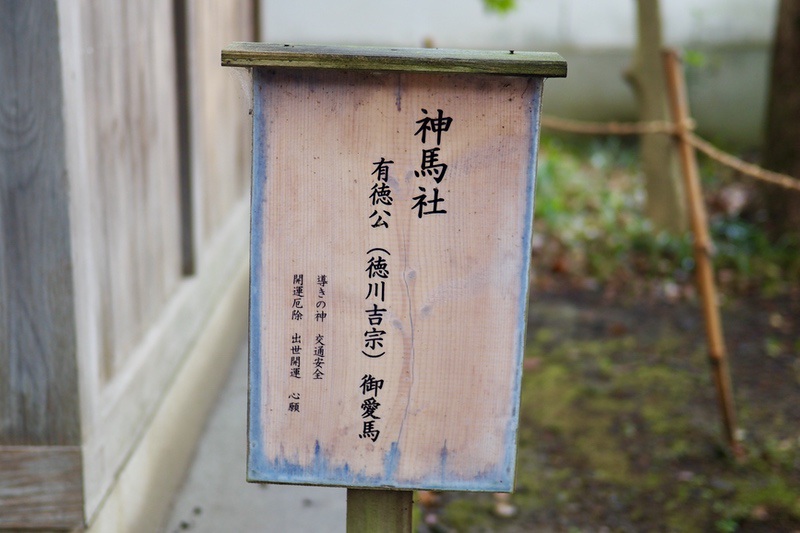 神馬社
有徳公（徳川吉宗）御愛馬
導きの神　交通安全
開運厄除　出世開運　心願